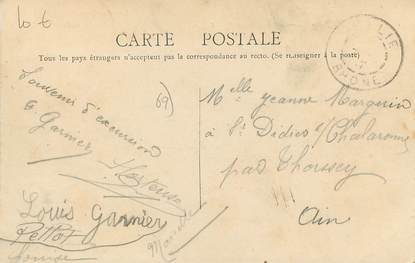 10 €
CARTE POSTALE
Tous les pays étrangers n'acceptent pas la correspondance au recto. (Se renseigner à la poste)
LIE
RHONE
69
Souvenir d'excursion
à Garnier
Louis Garnier
Pellot
Melle Jeanne Marguin
à St Didier s/ Chalaronne
par Thoissey
Ain